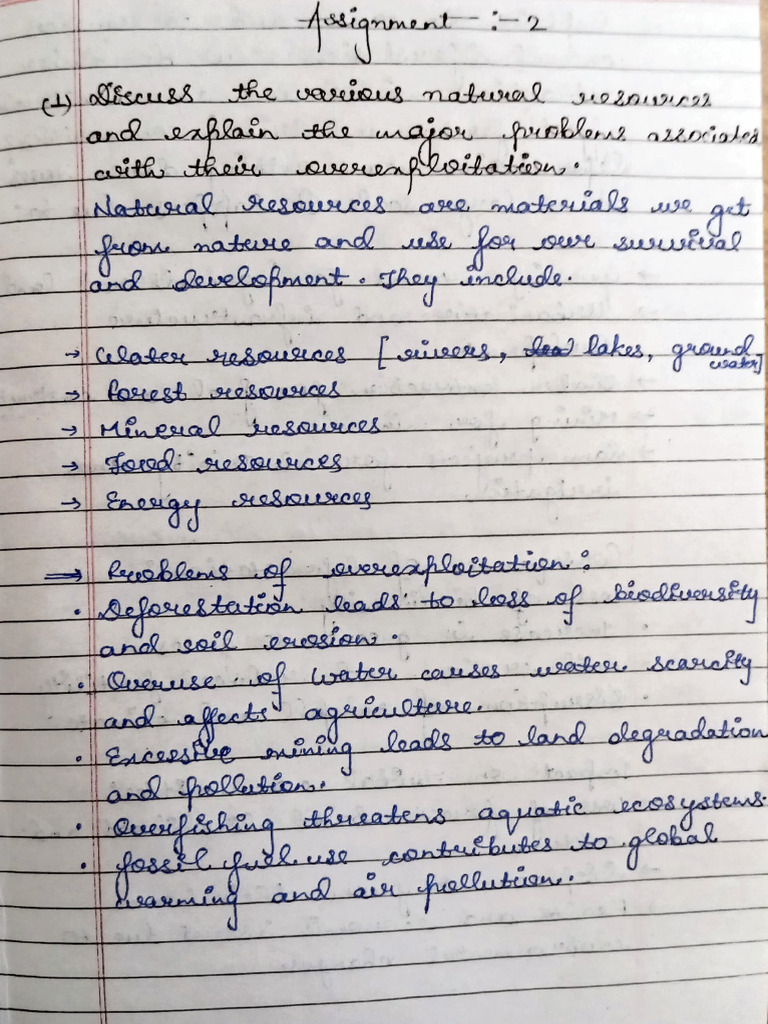 Assignment :- 2
(1) Discuss the various natural resources
and explain the major problems associated
with their overexploitation.
Natural resources are materials we get
from nature and use for our survival
and development. They include.
→ Water resources [rivers, lakes, ground
water]
→ Forest resources
→ Mineral resources
→ Food resources
→ Energy resources
⇒ Problems of overexploitation:
• Deforestation leads to loss of biodiversity
and soil erosion.
• Overuse of water causes water scarcity
and affects agriculture.
• Excessive mining leads to land degradation
and pollution.
• Overfishing threatens aquatic ecosystems.
• Fossil fuel use contributes to global
warming and air pollution.